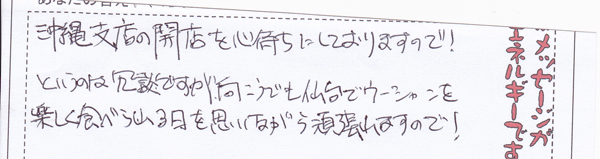 沖縄支店の開店を心待ちにしておりますので！
というのは冗談ですが向こうでも仙台でウーシャンを
楽しく食べられる日を思いながら頑張れますので！
メッセージが
エネルギーです